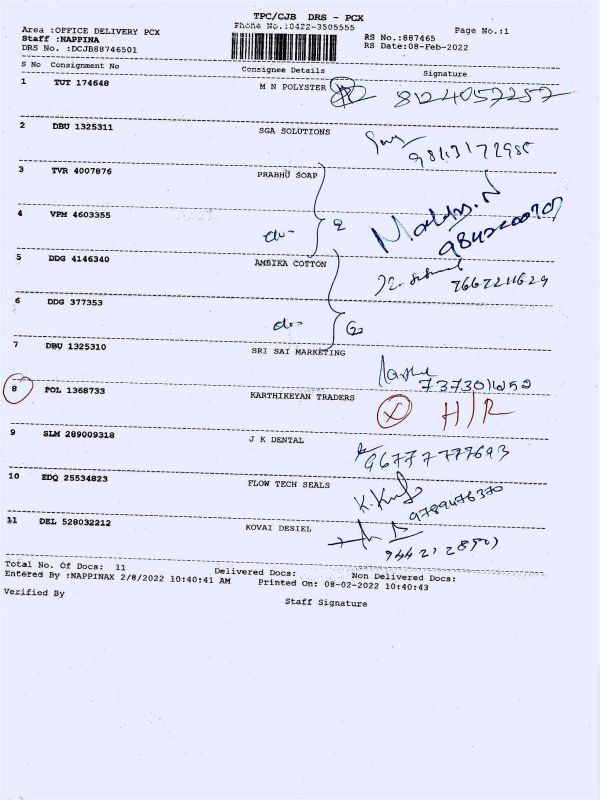 TPC/CJB DRS - PCX
Area :OFFICE DELIVERY PCX Phone No.:0422-3505555 Page No.:1
Staff :NAPPINA RS No.:887465
DRS No. :DCJB88746501 RS Date:08-Feb-2022
S No Consignment No Consignee Details Signature
1 TUT 174648 M N POLYSTER 8124057257
2 DBU 1325311 SGA SOLUTIONS
3 TVR 4007876 PRABHU SOAP
4 VPM 4603355 do- 2
5 DDG 4146340 AMBIKA COTTON
7667211629
6 DDG 377353 do-
7 DBU 1325310 SRI SAI MARKETING
8 POL 1368733 KARTHIKEYAN TRADERS X H/R
9 SLM 289009318 J K DENTAL
10 EDQ 25534823 FLOW TECH SEALS
9789476370
11 DEL 528032212 KOVAI DESIEL
Total No. Of Docs: 11 Delivered Docs: Non Delivered Docs:
Entered By :NAPPINAX 2/8/2022 10:40:41 AM Printed On: 08-02-2022 10:40:43
Verified By Staff Signature